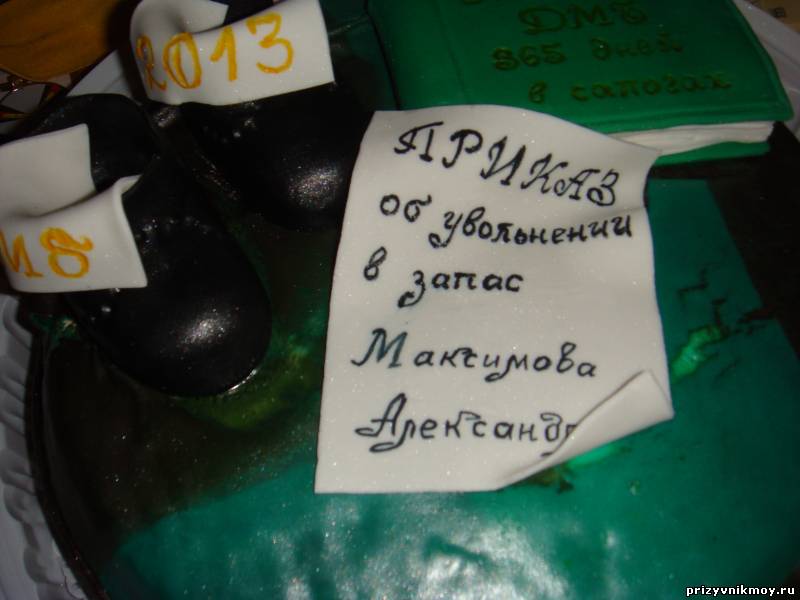 2013
ДМБ
365 дней
в сапогах
ПРИКАЗ
об увольнении
в запас
Максимова
Александр
МБ
prizyvnikmoy.ru